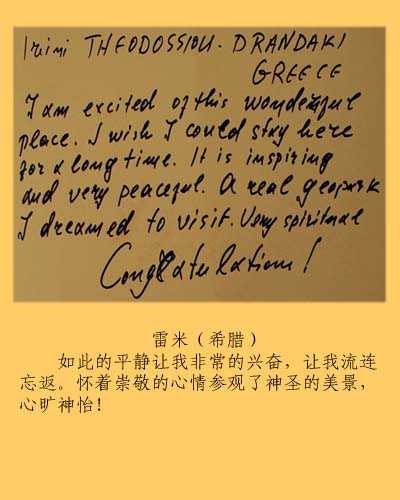 Irini THEODOSSIOU. DRANDAKI
GREECE
I am excited of this wondeful
place. I wish I could stay here
for a long time. It is inspiring
and very peaceful. A real geopark
I dreamed to visit. Very spiritual
Congratulations!
雷米（希腊）
如此的平静让我非常的兴奋，让我流连
忘返。怀着崇敬的心情参观了神圣的美景，
心旷神怡！